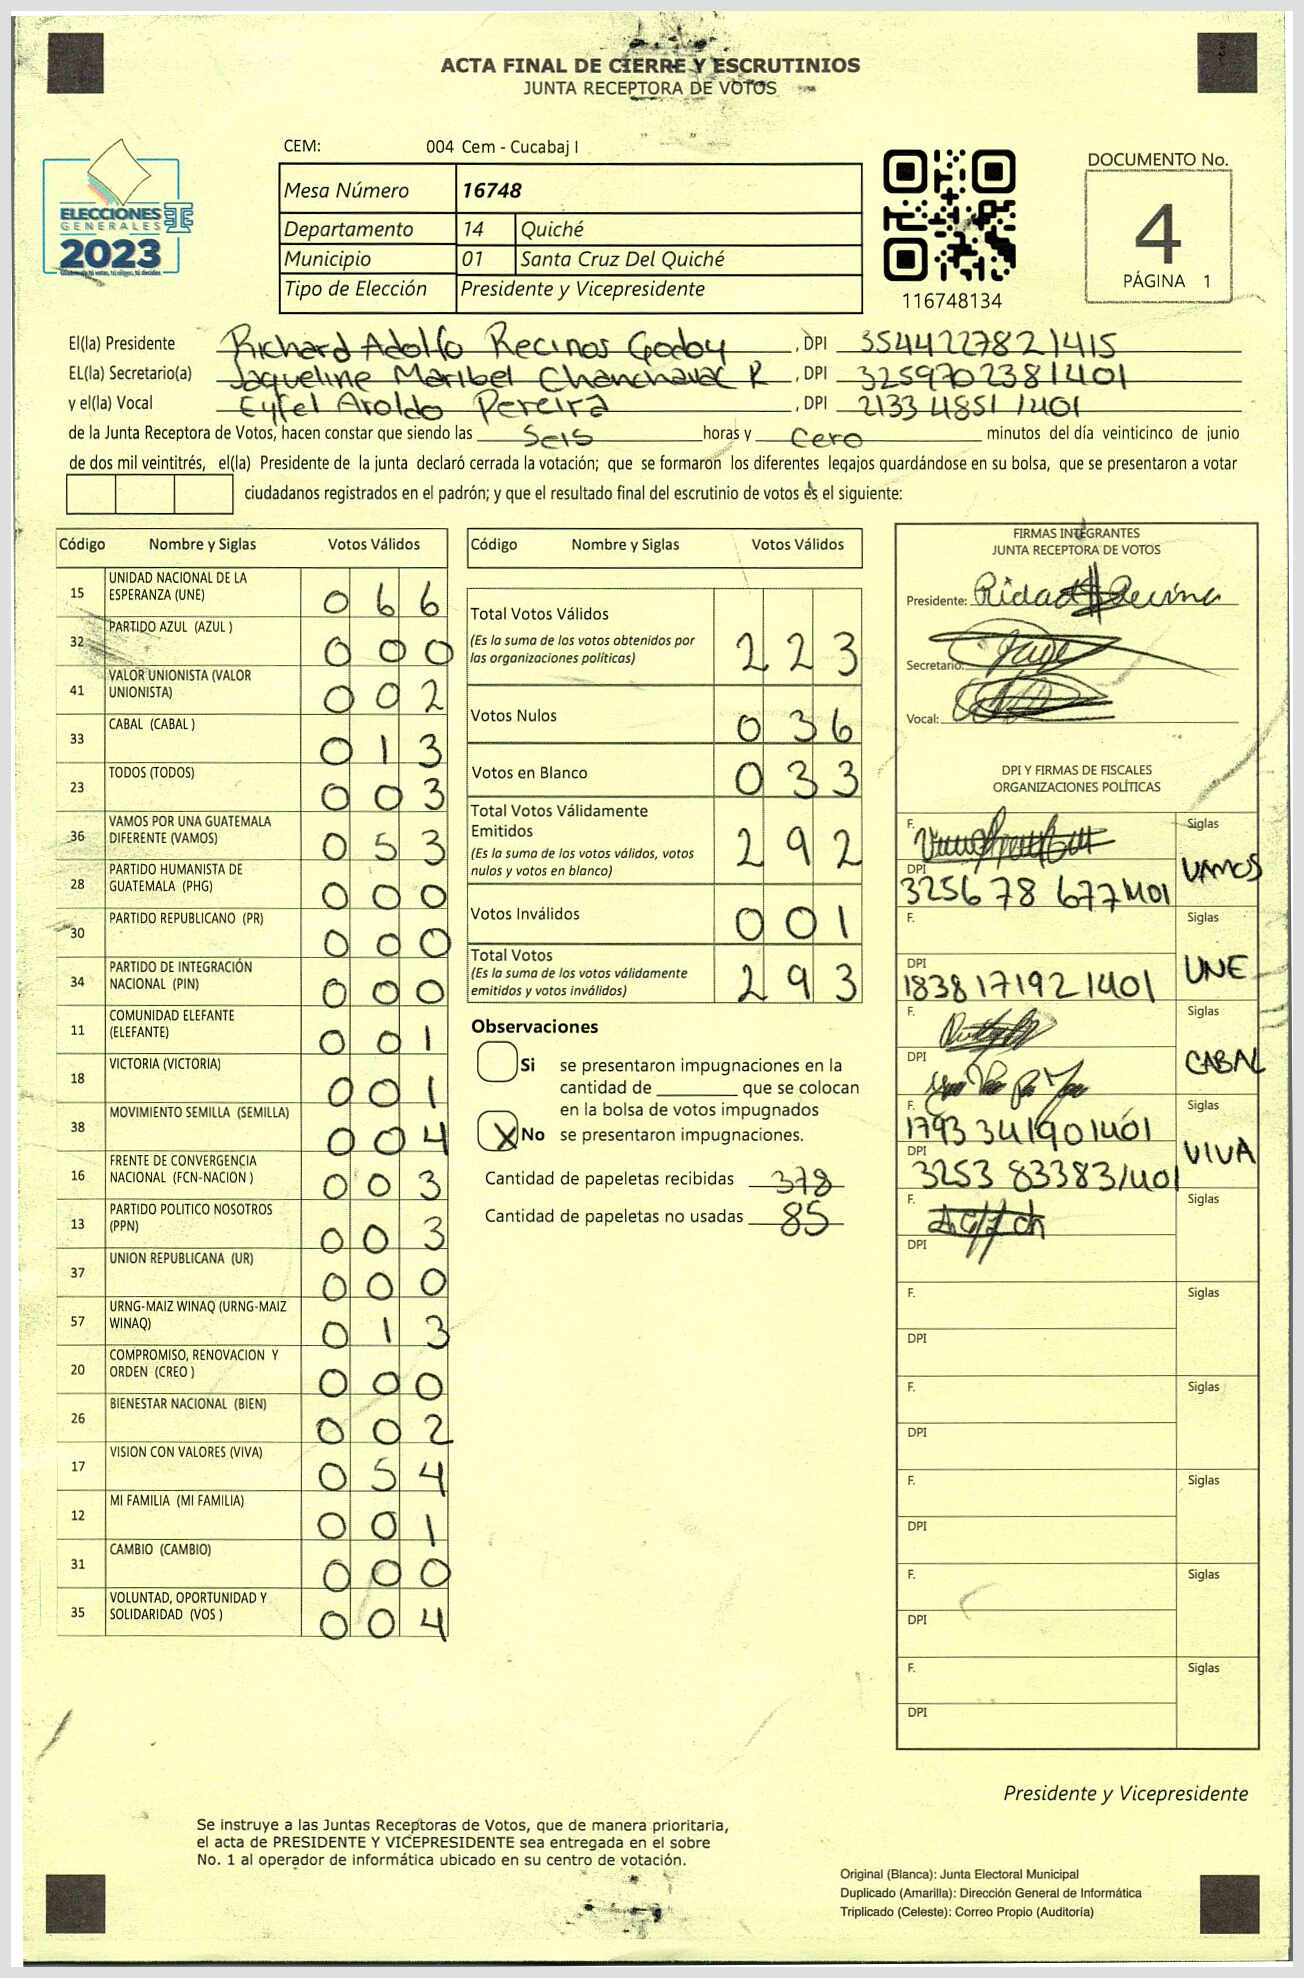 ACTA FINAL DE CIERRE Y ESCRUTINIOS
JUNTA RECEPTORA DE VOTOS
CEM: 004 Cem - Cucabaj I
ELECCIONES
GENERALES
2023
Mesa Número 16748
Departamento 14 Quiché
Municipio 01 Santa Cruz Del Quiché
Tipo de Elección Presidente y Vicepresidente
116748134
DOCUMENTO No.
4
PÁGINA 1
El(la) Presidente Richard Adolfo Recinos Godoy, DPI 3544227821415
EL(la) Secretario(a) Jaqueline Maribel Chanchavac R, DPI 3259702381401
y el(la) Vocal Eyfel Aroldo Pereira, DPI 2133 4851 1401
de la Junta Receptora de Votos, hacen constar que siendo las Seis horas y Cero minutos del día veinticinco de junio
de dos mil veintitrés, el(la) Presidente de la junta declaró cerrada la votación; que se formaron los diferentes legajos guardándose en su bolsa, que se presentaron a votar
ciudadanos registrados en el padrón; y que el resultado final del escrutinio de votos es el siguiente:
Código Nombre y Siglas Votos Válidos
15 UNIDAD NACIONAL DE LA ESPERANZA (UNE) 066
32 PARTIDO AZUL (AZUL ) 000
41 VALOR UNIONISTA (VALOR UNIONISTA) 002
33 CABAL (CABAL ) 013
23 TODOS (TODOS) 003
36 VAMOS POR UNA GUATEMALA DIFERENTE (VAMOS) 053
28 PARTIDO HUMANISTA DE GUATEMALA (PHG) 000
30 PARTIDO REPUBLICANO (PR) 000
34 PARTIDO DE INTEGRACIÓN NACIONAL (PIN) 000
11 COMUNIDAD ELEFANTE (ELEFANTE) 001
18 VICTORIA (VICTORIA) 001
38 MOVIMIENTO SEMILLA (SEMILLA) 004
16 FRENTE DE CONVERGENCIA NACIONAL (FCN-NACION ) 003
13 PARTIDO POLITICO NOSOTROS (PPN) 003
37 UNION REPUBLICANA (UR) 000
57 URNG-MAIZ WINAQ (URNG-MAIZ WINAQ) 013
20 COMPROMISO, RENOVACION Y ORDEN (CREO ) 000
26 BIENESTAR NACIONAL (BIEN) 002
17 VISION CON VALORES (VIVA) 054
12 MI FAMILIA (MI FAMILIA) 001
31 CAMBIO (CAMBIO) 000
35 VOLUNTAD, OPORTUNIDAD Y SOLIDARIDAD (VOS ) 004
Código Nombre y Siglas Votos Válidos
Total Votos Válidos 223
(Es la suma de los votos obtenidos por
las organizaciones políticas)
Votos Nulos 036
Votos en Blanco 033
Total Votos Válidamente
Emitidos 292
(Es la suma de los votos válidos, votos
nulos y votos en blanco)
Votos Inválidos 001
Total Votos 293
(Es la suma de los votos válidamente
emitidos y votos inválidos)
Observaciones
Si se presentaron impugnaciones en la
cantidad de ________ que se colocan
en la bolsa de votos impugnados
X No se presentaron impugnaciones.
Cantidad de papeletas recibidas 378
Cantidad de papeletas no usadas 85
FIRMAS INTEGRANTES
JUNTA RECEPTORA DE VOTOS
Presidente:
Secretario:
Vocal:
DPI Y FIRMAS DE FISCALES
ORGANIZACIONES POLÍTICAS
F. Siglas
VAMOS
DPI 3256 78 677 1401
F. Siglas
UNE
DPI 1838 17192 1401
F. Siglas
CABAL
DPI
F. 1793 341901401 Siglas
VIVA
DPI 3253 83383 1401
F. Siglas
DPI
F. Siglas
DPI
F. Siglas
DPI
F. Siglas
DPI
F. Siglas
DPI
F. Siglas
DPI
Presidente y Vicepresidente
Se instruye a las Juntas Receptoras de Votos, que de manera prioritaria,
el acta de PRESIDENTE Y VICEPRESIDENTE sea entregada en el sobre
No. 1 al operador de informática ubicado en su centro de votación.
Original (Blanca): Junta Electoral Municipal
Duplicado (Amarilla): Dirección General de Informática
Triplicado (Celeste): Correo Propio (Auditoría)